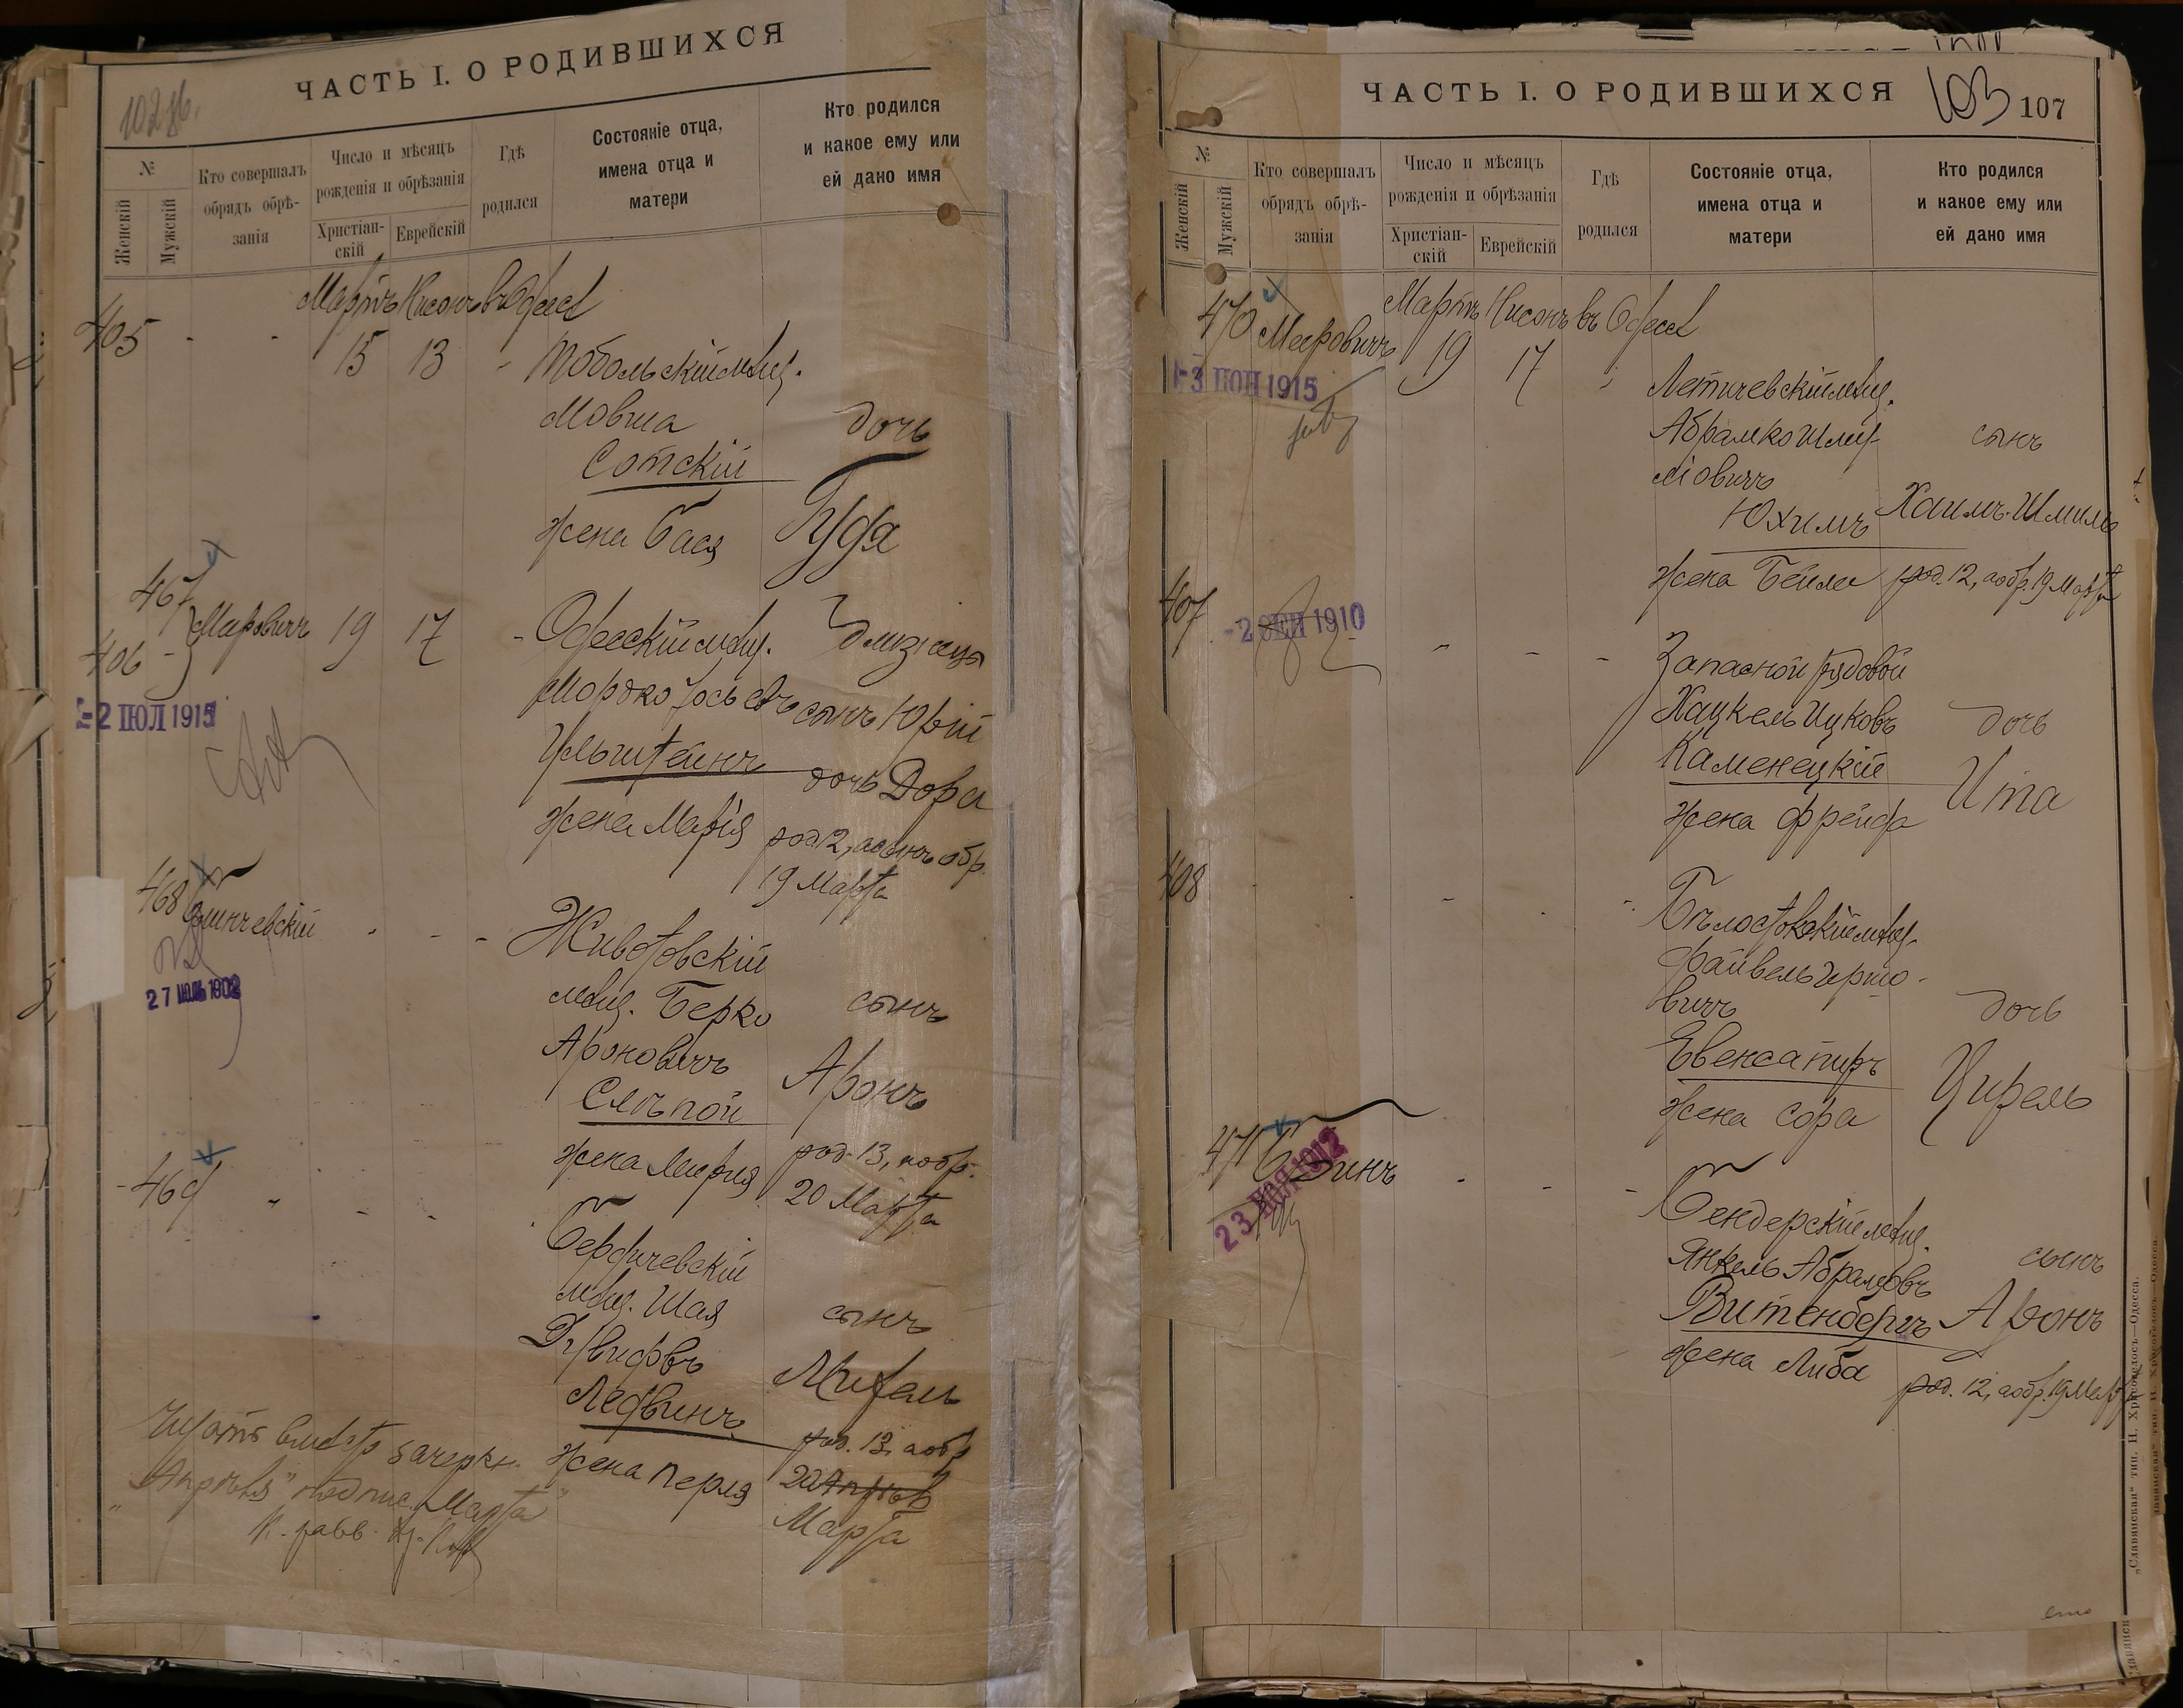 ЧАСТЬ I. О РОДИВШИХСЯ
102 об.
№
Женскій
Мужскій
Кто совершалъ
обрядъ обрѣ-
занія
Число и мѣсяцъ
рожденія и обрѣзанія
Христіан-
скій
Еврейскій
Гдѣ
родился
Состояніе отца,
имена отца и
матери
Кто родился
и какое ему или
ей дано имя
Мартъ Нисонъ въ Одессѣ
405 - - 15 13 - Тобольскій мѣщ.
Мовша дочь
Сотскій
жена Бася Гуда
467
406 - Меровичъ 19 17 - Одесскій мѣщ. близнецы
2 ІЮЛ 1915
Мордко Іосьевъ сынъ Юрій
дочь Дора
жена Марія род. 12, а сынъ обр.
19 Марта
468
27 1902
Животовскій
мѣщ. Берко сынъ
Ароновичъ Аронъ
Слѣпой
жена Мирия род. 13, а обр.
20 Марта
469 " - - Бердичевскій
мѣщ. Шая сынъ
Михель
Ледвинъ
род. 13, а обр
жена Перля 20 Апрѣля
Марта
Читать вмѣсто зачеркн.
„Апрѣля" надпис. „Марта"
К. равв.
ЧАСТЬ I. О РОДИВШИХСЯ
103 107
№
Женскій
Мужскій
Кто совершалъ
обрядъ обрѣ-
занія
Число и мѣсяцъ
рожденія и обрѣзанія
Христіан-
скій
Еврейскій
Гдѣ
родился
Состояніе отца,
имена отца и
матери
Кто родился
и какое ему или
ей дано имя
Мартъ Нисонъ въ Одессѣ
470 Меровичъ 19 17 Летичевскій мѣщ.
3 ІЮН 1915
Абрамко Шму-
ліовичъ сынъ
Юхимъ Хаимъ-Шмиль
жена Бейла род. 12, а обр. 19 Марта
407
-2 СЕН 1910
" - - Запасной рядовой
Хацкель Ицковъ дочь
Каменецкій Ита
жена Фрейда
408 - - - Бѣлостокскій мѣщ.
Файвель Гершо-
вичъ дочь
Евенсапиръ Цирель
жена Сора
471
23 НОЯ 1912
- - - Бендерскій мѣщ.
Янкель Абрамовъ сынъ
Витенбергъ Аронъ
жена Либа
род. 12, а обр. 19 Марта
„Славянская" тип. Н. Хрисогелосъ—Одесса.